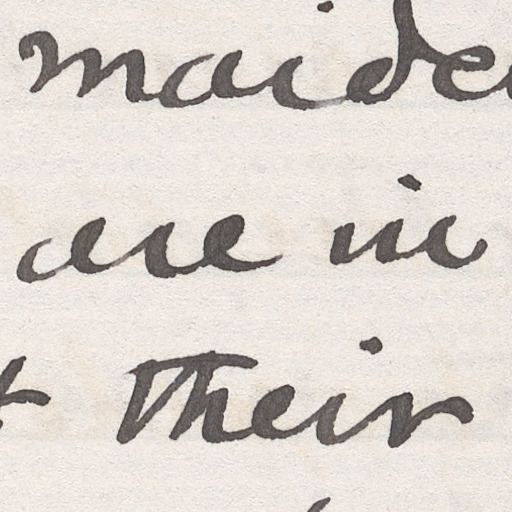 maide
are in
their